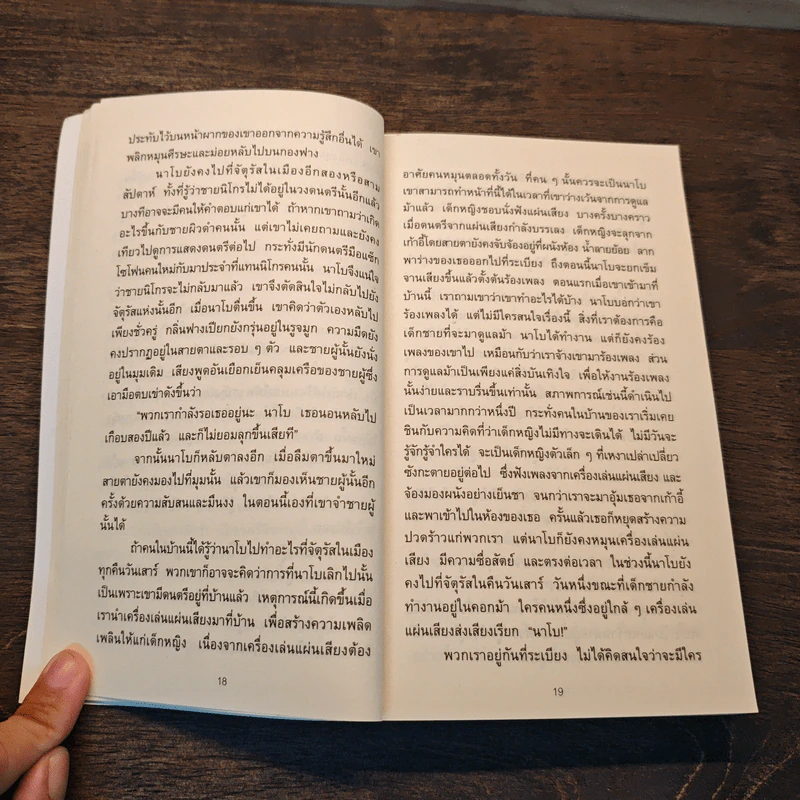 ประทับไว้บนหน้าผากของเขาออกจากความรู้สึกอื่นได้ เขา
พลิกหมุนศีรษะและม่อยหลับไปบนกองฟาง
นาโบยังคงไปที่จัตุรัสในเมืองอีกสองหรือสาม
สัปดาห์ ทั้งที่รู้ว่าชายนิโกรไม่ได้อยู่ในวงดนตรีนั้นอีกแล้ว
บางทีอาจจะมีคนให้คำตอบแก่เขาได้ ถ้าหากเขาถามว่าเกิด
อะไรขึ้นกับชายผิวดำคนนั้น แต่เขาไม่เคยถามและยังคง
เทียวไปดูการแสดงดนตรีต่อไป กระทั่งมีนักดนตรีมือแซ็ก
โซโฟนคนใหม่กับมาประจำที่แทนนิโกรคนนั้น นาโบจึงแน่ใจ
ว่าชายนิโกรจะไม่กลับมาแล้ว เขาจึงตัดสินใจไม่กลับไปยัง
จัตุรัสแห่งนั้นอีก เมื่อนาโบตื่นขึ้น เขาคิดว่าตัวเองหลับไป
เพียงชั่วครู่ กลิ่นฟางเปียกยังกรุ่นอยู่ในรูจมูก ความมืดยัง
คงปรากฏอยู่ในสายตาและรอบ ๆ ตัว และชายผู้นั้นยังนั่ง
อยู่ในมุมเดิม เสียงพูดอันเยือกเย็นคลุมเครือของชายผู้ซึ่ง
เอามือตบเข่าดังขึ้นว่า
“พวกเรากำลังรอเธออยู่นะ นาโบ เธอนอนหลับไป
เกือบสองปีแล้ว และก็ไม่ยอมลุกขึ้นเสียที”
จากนั้นนาโบก็หลับตาลงอีก เมื่อลืมตาขึ้นมาใหม่
สายตายังคงมองไปที่มุมนั้น แล้วเขาก็มองเห็นชายผู้นั้นอีก
ครั้งด้วยความสับสนและมึนงง ในตอนนี้เองที่เขาจำชายผู้
นั้นได้
ถ้าคนในบ้านนี้ได้รู้ว่านาโบไปทำอะไรที่จัตุรัสในเมือง
ทุกคืนวันเสาร์ พวกเขาก็อาจจะคิดว่าการที่นาโบเลิกไปนั้น
เป็นเพราะเขามีดนตรีอยู่ที่บ้านแล้ว เหตุการณ์นี้เกิดขึ้นเมื่อ
เรานำเครื่องเล่นแผ่นเสียงมาที่บ้าน เพื่อสร้างความเพลิด
เพลินให้แก่เด็กหญิง เนื่องจากเครื่องเล่นแผ่นเสียงต้อง
18
อาศัยคนหมุนตลอดทั้งวัน ที่คน ๆ นั้นควรจะเป็นนาโบ
เขาสามารถทำหน้าที่นี้ได้ในเวลาที่เขาว่างเว้นจากการดูแล
ม้าแล้ว เด็กหญิงชอบนั่งฟังแผ่นเสียง บางครั้งบางคราว
เมื่อดนตรีจากแผ่นเสียงกำลังบรรเลง เด็กหญิงจะลุกจาก
เก้าอี้โดยสายตายังคงจับจ้องอยู่ที่ผนังห้อง น้ำลายย้อย ลาก
พาร่างของเธอออกไปที่ระเบียง ถึงตอนนี้นาโบจะยกเข็ม
จานเสียงขึ้นแล้วตั้งต้นร้องเพลง ตอนแรกเมื่อเขาเข้ามาที่
บ้านนี้ เราถามเขาว่าเขาทำอะไรได้บ้าง นาโบบอกว่าเขา
ร้องเพลงได้ แต่ไม่มีใครสนใจเรื่องนี้ สิ่งที่เราต้องการคือ
เด็กชายที่จะมาดูแลม้า นาโบได้ทำงาน แต่ก็ยังคงร้อง
เพลงของเขาไป เหมือนกับว่าเราจ้างเขามาร้องเพลง ส่วน
การดูแลม้าเป็นเพียงแค่สิ่งบันเทิงใจ เพื่อให้งานร้องเพลง
นั้นง่ายและราบรื่นขึ้นเท่านั้น สภาพการณ์เช่นนี้ดำเนินไป
เป็นเวลามากกว่าหนึ่งปี กระทั่งคนในบ้านของเราเริ่มเคย
ชินกับความคิดที่ว่าเด็กหญิงไม่มีทางจะเดินได้ ไม่มีวันจะ
รู้จักรู้จำใครได้ จะเป็นเด็กหญิงตัวเล็ก ๆ ที่เหงาเปล่าเปลี่ยว
ซังกะตายอยู่ต่อไป ซึ่งฟังเพลงจากเครื่องเล่นแผ่นเสียง และ
จ้องมองผนังอย่างเย็นชา จนกว่าเราจะมาอุ้มเธอจากเก้าอี้
และพาเข้าไปในห้องของเธอ ครั้นแล้วเธอก็หยุดสร้างความ
ปวดร้าวแก่พวกเรา แต่นาโบก็ยังคงหมุนเครื่องเล่นแผ่น
เสียง มีความซื่อสัตย์ และตรงต่อเวลา ในช่วงนี้นาโบยัง
คงไปที่จัตุรัสในคืนวันเสาร์ วันหนึ่งขณะที่เด็กชายกำลัง
ทำงานอยู่ในคอกม้า ใครคนหนึ่งซึ่งอยู่ใกล้ ๆ เครื่องเล่น
แผ่นเสียงส่งเสียงเรียก “นาโบ!”
พวกเราอยู่กันที่ระเบียง ไม่ได้คิดสนใจว่าจะมีใคร
19